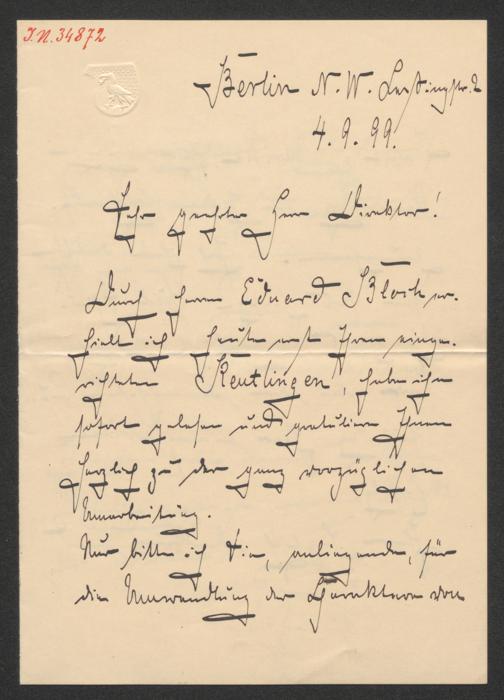 I.N. 34872
Berlin N. W. Lessingstr. 2
4. 9. 99.
Sehr geehrter Herr Direktor!
Durch Herrn Eduard Bloch er-
hielt ich heute erst Ihren einge-
richteten Reutlingen, habe ihn
sofort gelesen und gratuliere Ihnen
herzlich zu der ganz vorzüglichen
Umarbeitung.
Nur bitte ich Sie, anliegende, für
die Umwandlung der Charaktere von